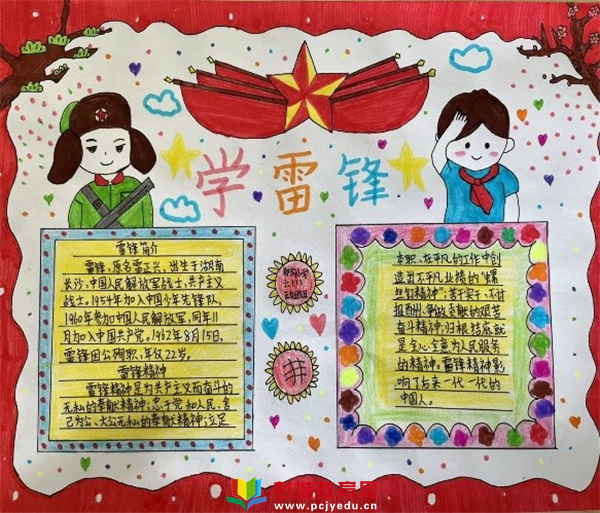 学雷锋
雷锋简介
雷锋,原名雷正兴,出生于湖南
长沙,中国人民解放军战士,共产主义
战士,1954年加入中国少年先锋队,
1960年参加中国人民解放军,同年11
月加入中国共产党。1962年8月15日,
雷锋因公殉职,年仅22岁。
雷锋精神
雷锋精神是为共产主义而奋斗的
无私的奉献精神;忠于党和人民、舍
己为公、大公无私的奉献精神;立足
本职、在平凡的工作中创
造出不平凡业绩的“螺
丝钉精神”;苦干实干、不计
报酬、争做贡献的艰苦
奋斗精神;归根结底就
是全心全意为人民服务
的精神。雷锋精神影
响了后来一代一代的
中国人。
www.pcjyedu.cn